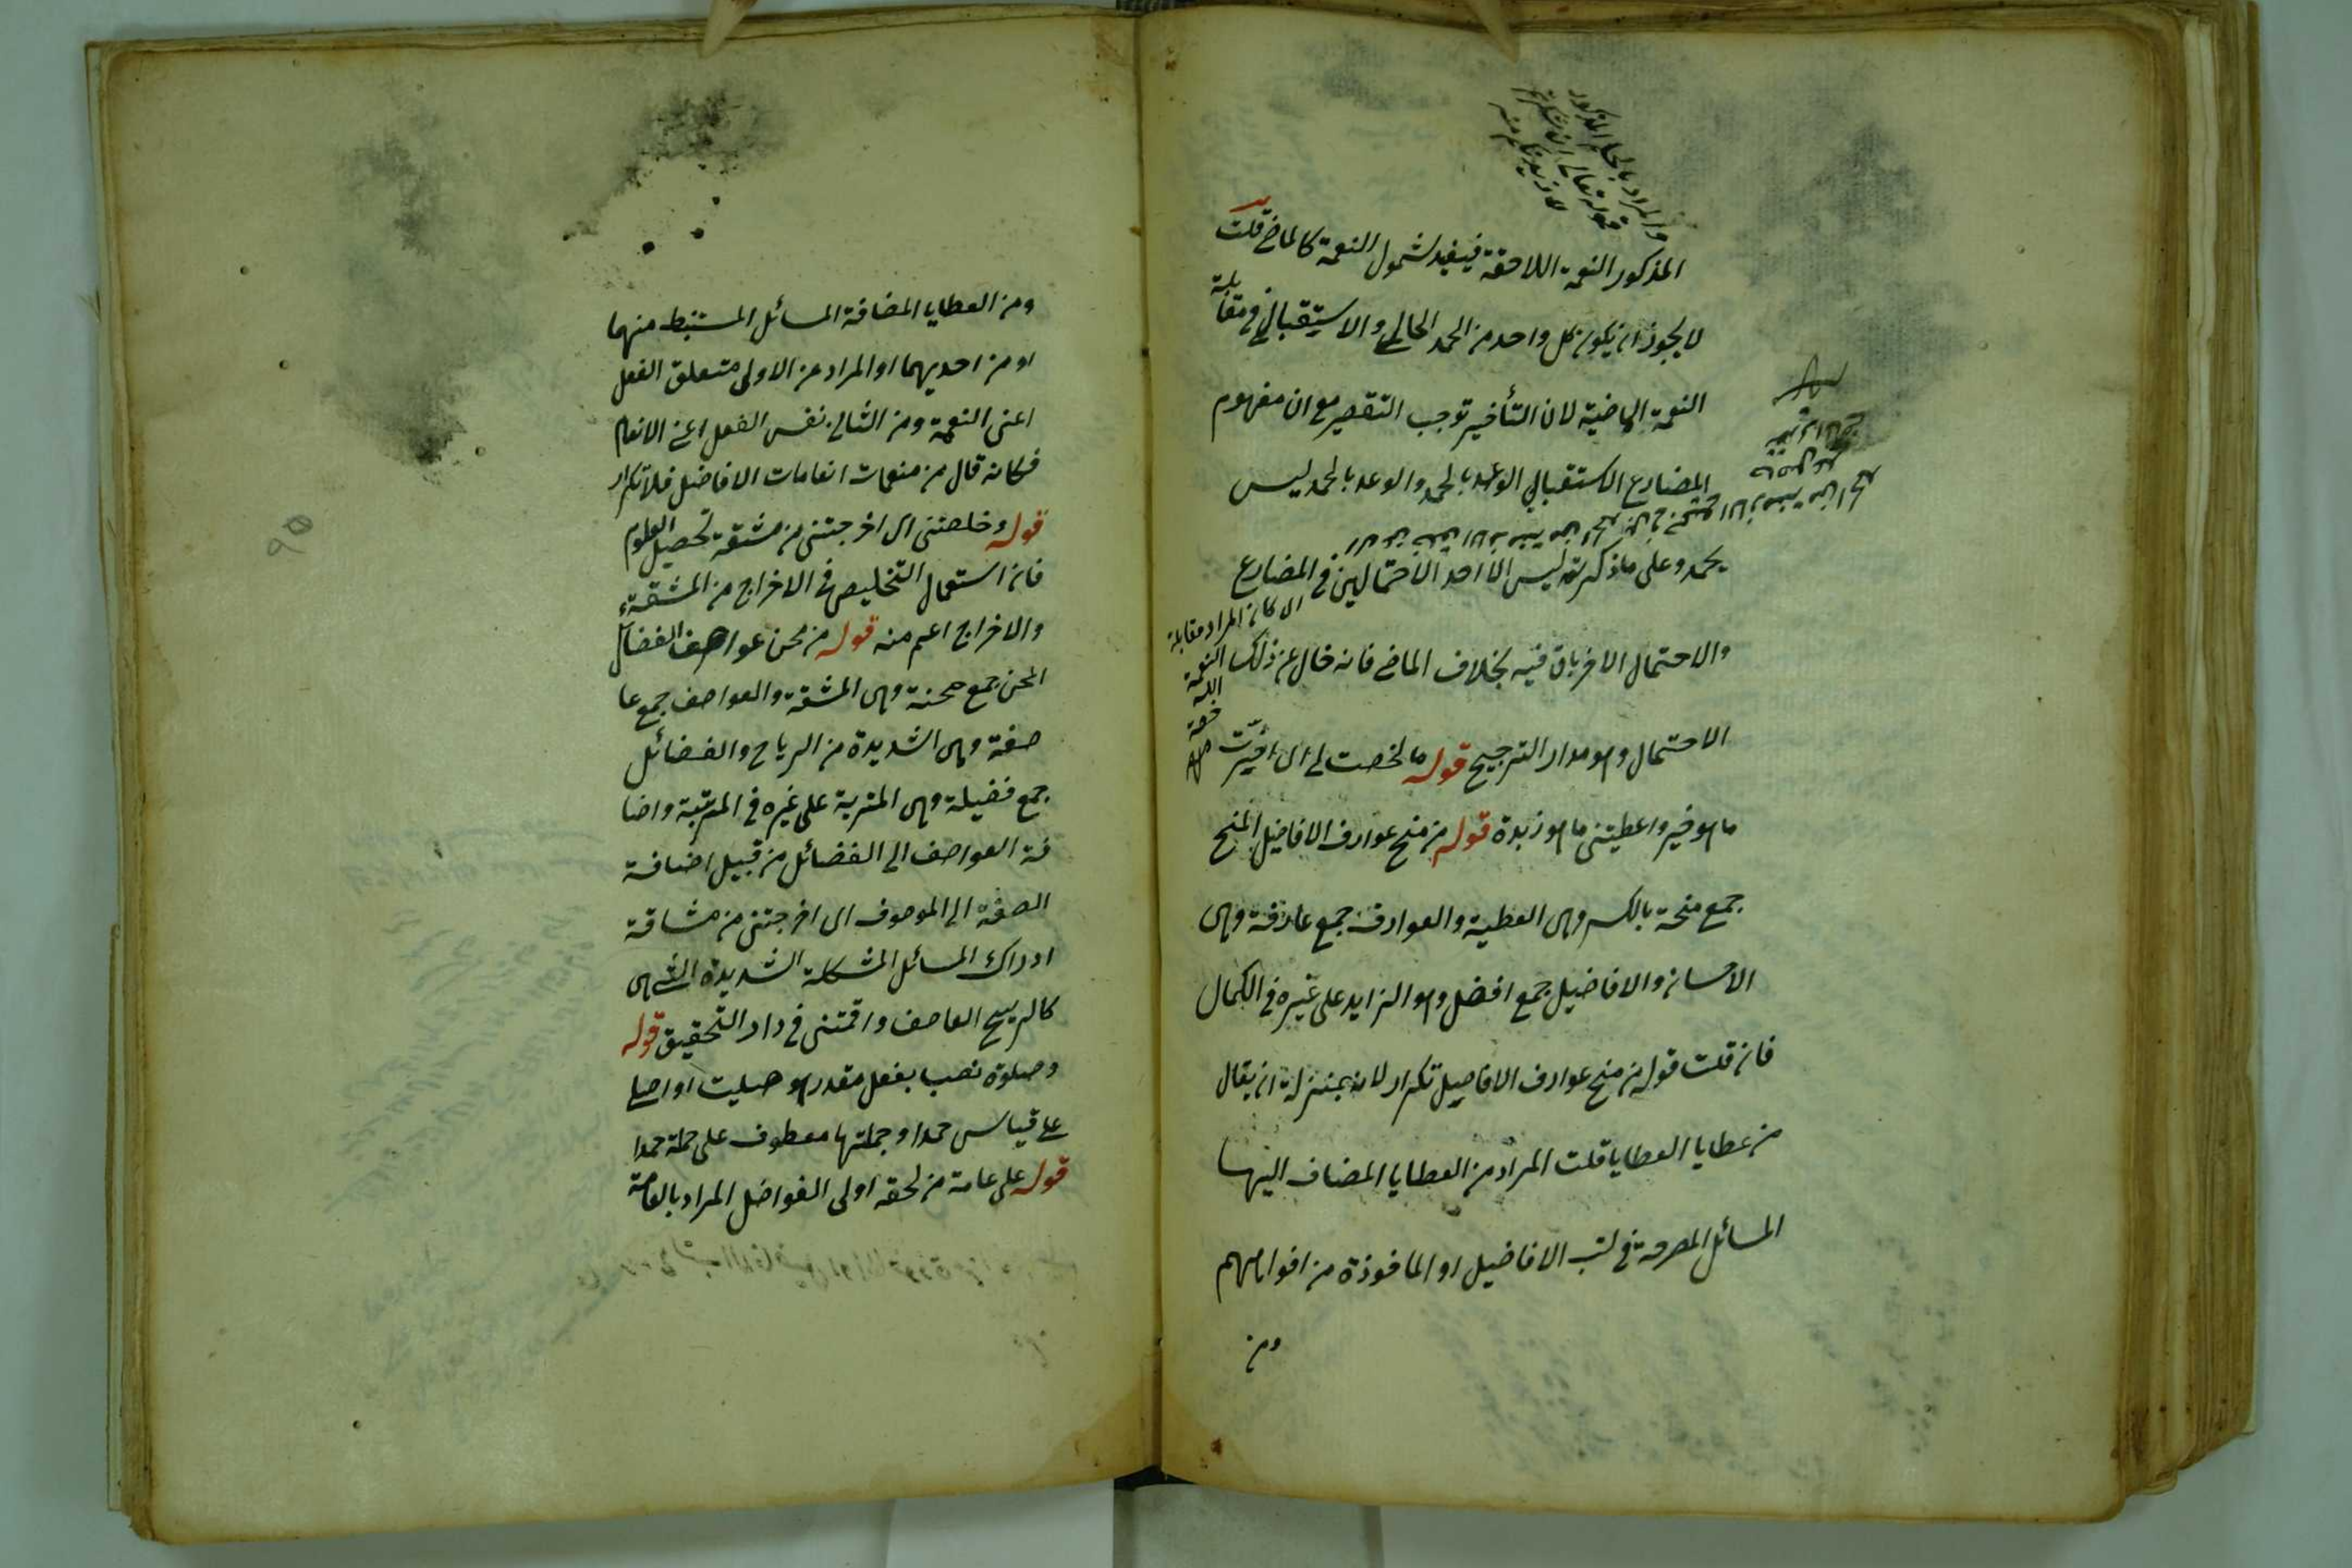 والمراد بالحكم المذكور
قوله تعالى لئن شكرتم
لازيدنكم منه
المذكور النعمة اللاحقة فيفيد شمول النعمة كالماضي قلت
لا يجوز ان يكون كل واحد من الحمد الحالي والاستقبالي في مقابلة
النعمة الماضية لان التأخير توجب التقصير مع ان مفهوم
المضارع الاستقبالي الوعد بالحمد والوعد بالحمد ليس
بحمد وعلى ما ذكرته ليس الا احد الاحتمالين في المضارع
والاحتمال الاخر باق فيه بخلاف الماضي فانه خال عن ذلك
ان كان المراد مقابلة
النعمة
الاحتمال وهو مدار الترجيح قوله ما لخصت لي اى اخيرت
ما هو خير واعطيتنى ما هو زبدة قوله من منح عوارف الافاضيل المنح
جمع منحة بالكسر وهى العطية والعوارف جمع عارفة وهى
الاحسان والافاضيل جمع افضل وهو الزايد على غيره في الكمال
فان قلت قوله من منح عوارف الافاضيل تكرار لانه بمنزلة ان يقال
من عطايا العطايا قلت المراد من العطايا المضاف اليها
المسائل المصرحة في كتب الافاضيل او المأخوذة من افواههم
ومن
ومن العطايا المضافة المسائل المستنبط منهما
او من احديهما او المراد من الاولى متعلق الفعل
اعنى النعمة ومن الثانى نفس الفعل اعنى الانعام
فكانه قال من منعمات انعامات الافاضل فلا تكرار
قوله وخلصتنى اى اخرجتنى من مشقة تحصيل العلوم
فان استعمال التخليص في الاخراج من المشقة
والاخراج اعم منه قوله من محن عواصف الفضائل
المحن جمع محنة وهى المشقة والعواصف جمع عا
صفة وهى الشديدة من الرياح والفضائل
جمع فضيلة وهى المزية على غيره في المرتبة واضا
فة العواصف الى الفضائل من قبيل اضافة
الصفة الى الموصوف اى اخرجتنى من مشاقة
ادراك المسائل المشكلة الشديدة التى هى
كالريح العاصف واقمتنى في دار التحقيق قوله
وصلوة نصب بفعل مقدر هو صليت او اصلى
على قياس حمدا وجملتها معطوف على جملة حمدا
قوله على عامة من لحقه اولى الفواضل المراد بالعامة
٩٥